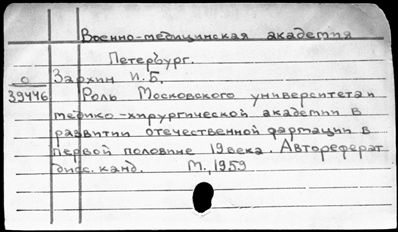 Военно-медицинская академия
Петербург.
О Зархин И.Б.
39446 Роль Московского университета и
медико-хирургической академии в
развитии отечественной фармации в
первой половине 19 века. Автореферат
дисс. канд. М., 1959